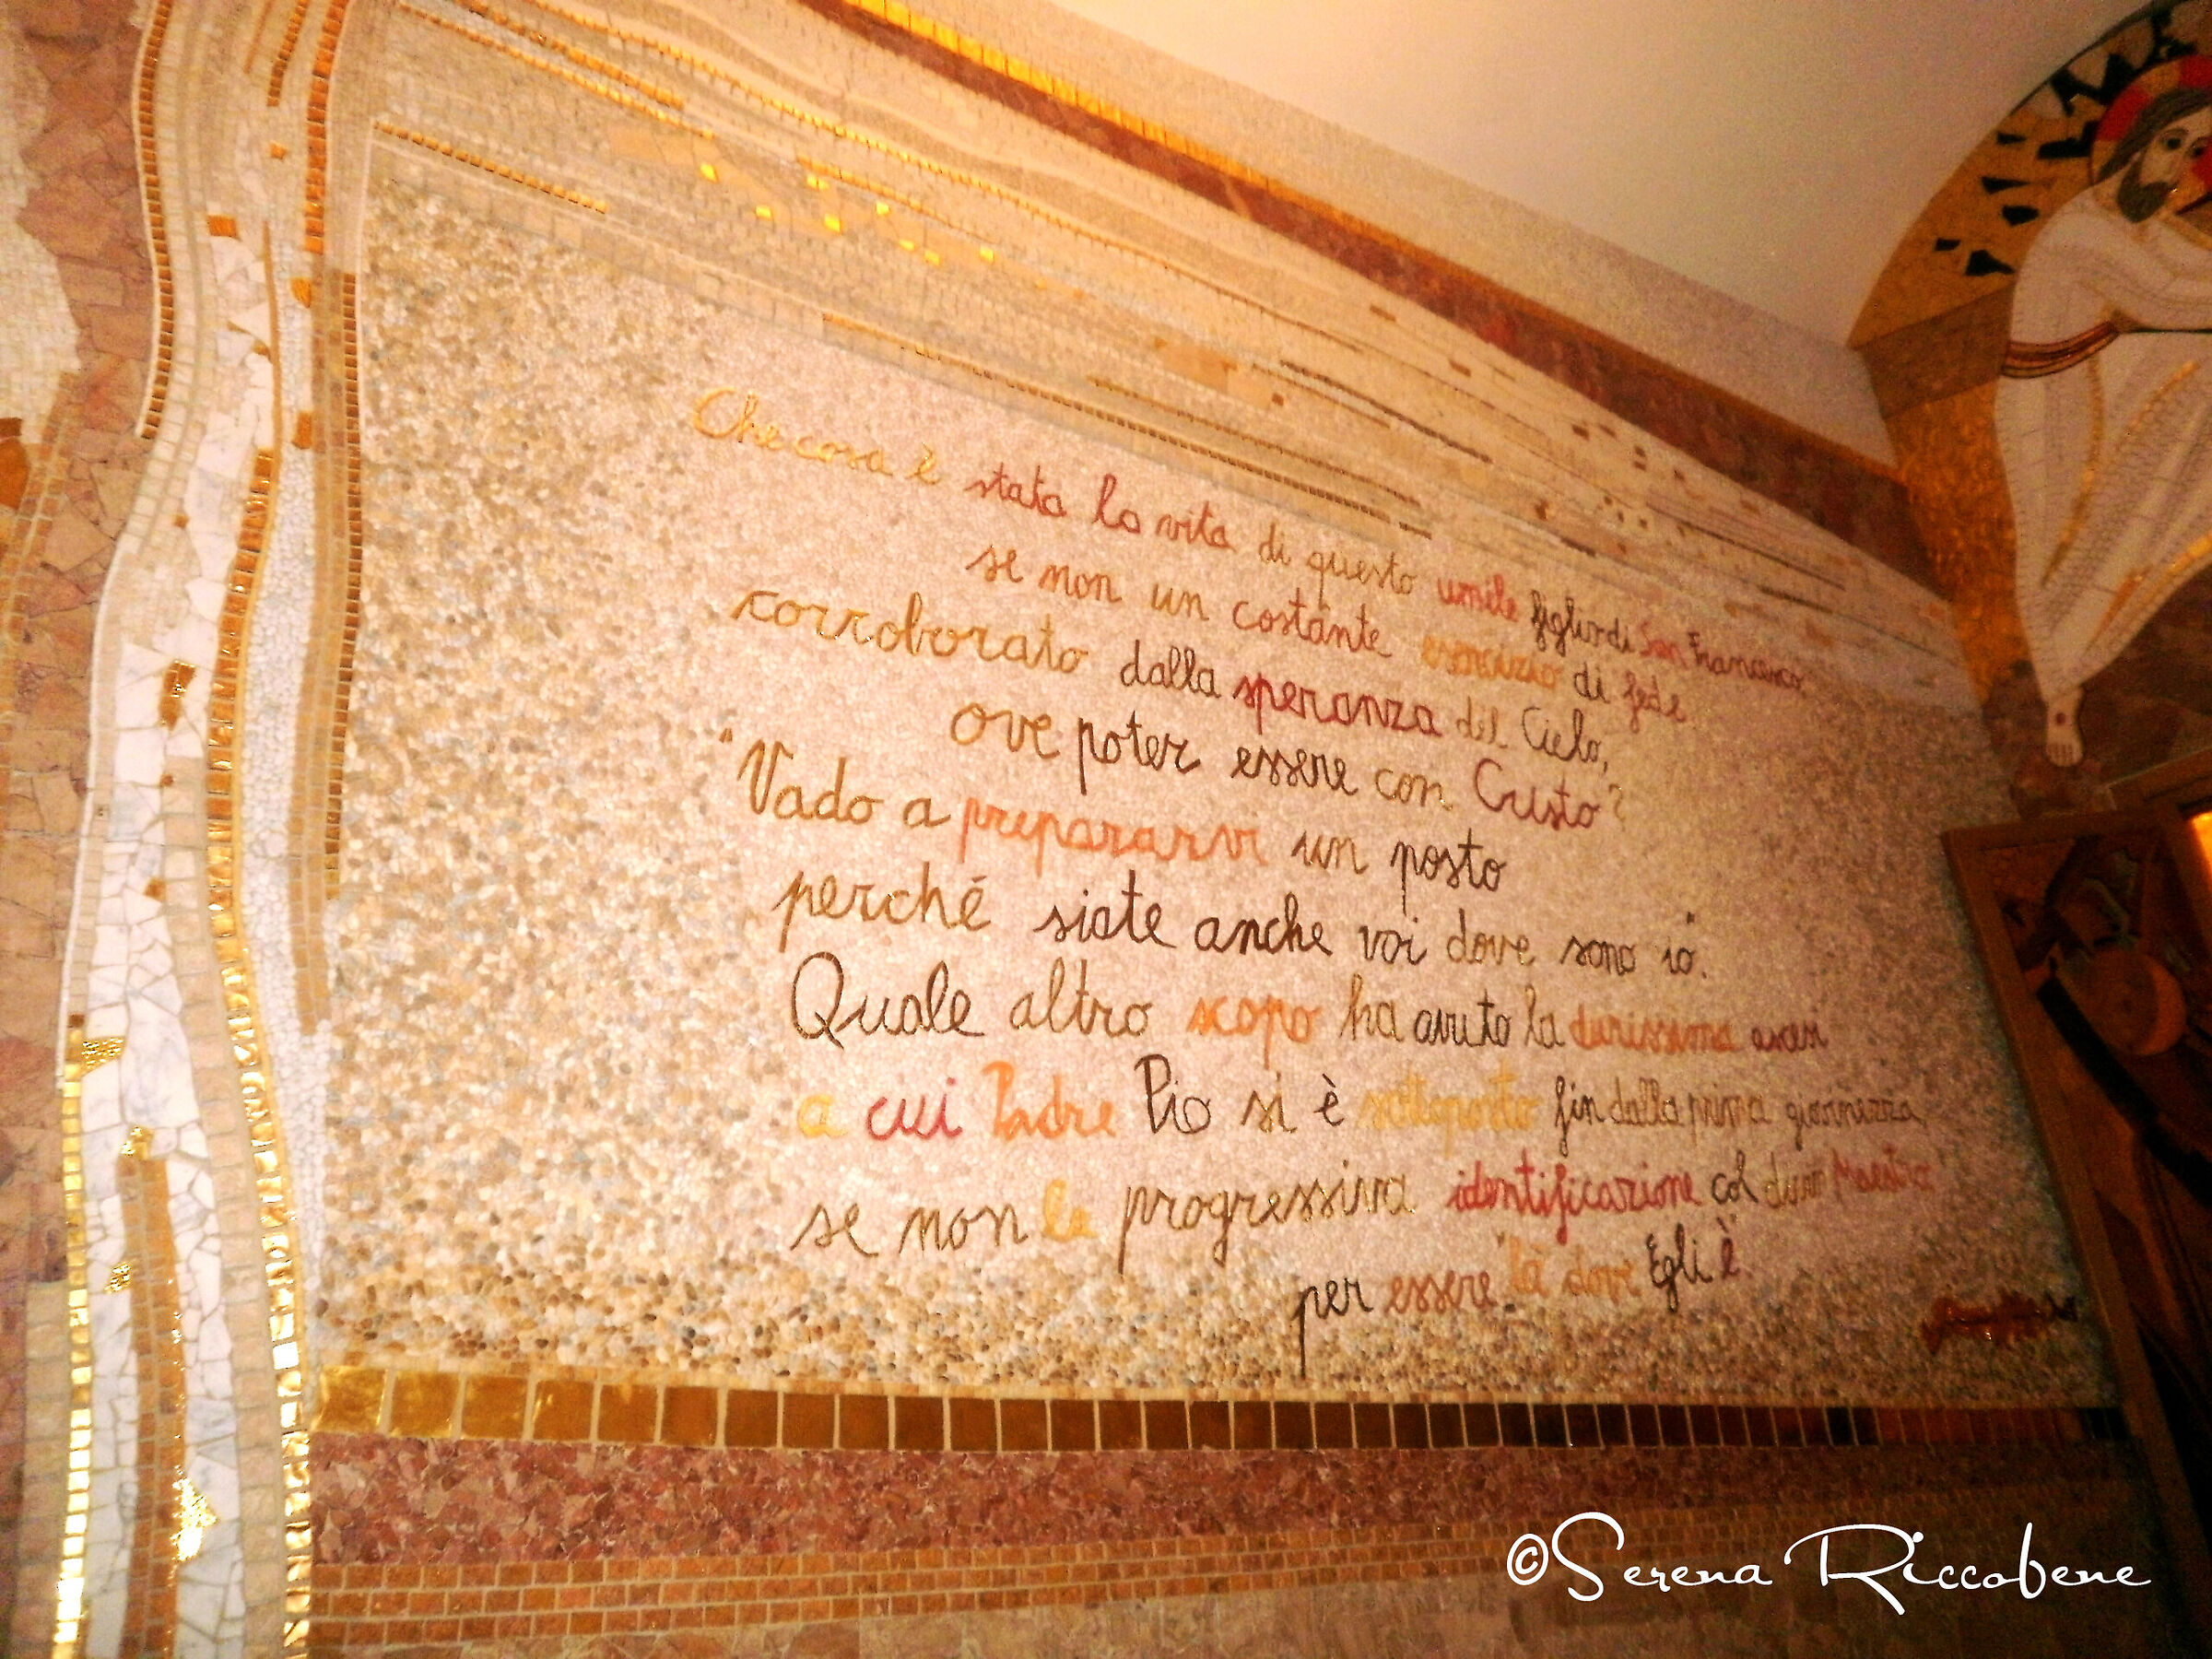 Che cosa è stata la vita di questo umile figlio di San Francesco,
se non un costante esercizio di fede
corroborato dalla speranza del Cielo,
ove poter essere con Cristo?
"Vado a prepararvi un posto
perché siate anche voi dove sono io".
Quale altro scopo ha avuto la durissima ascesi
a cui Padre Pio si è sottoposto fin dalla prima giovinezza,
se non la progressiva identificazione col divin Maestro
per essere "là dove Egli è"
©Serena Riccobene